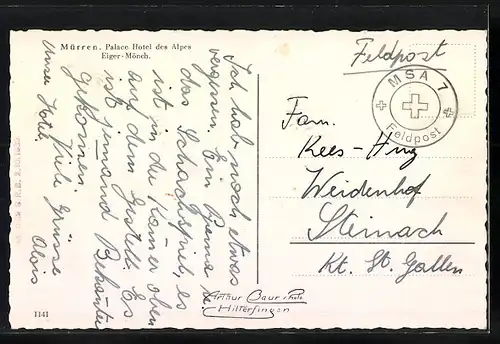 Mürren. Palace Hotel des Alpes
Eiger-Mönch.
Ich hab noch etwas
vergessen. Ein
das Schachspiel, es
ist in die Kamer oben
auf dem Gestell. Es
ist jemand Bekante
gekomen.
Viele Grüsse
Alois
Unser Hotel
Feldpost
MSA 7
Feldpost
Fam.
Kees-Hug
Weidenhof
Steinach
Kt. St. Gallen
Arthur Baur Photo
Hilterfingen
1141